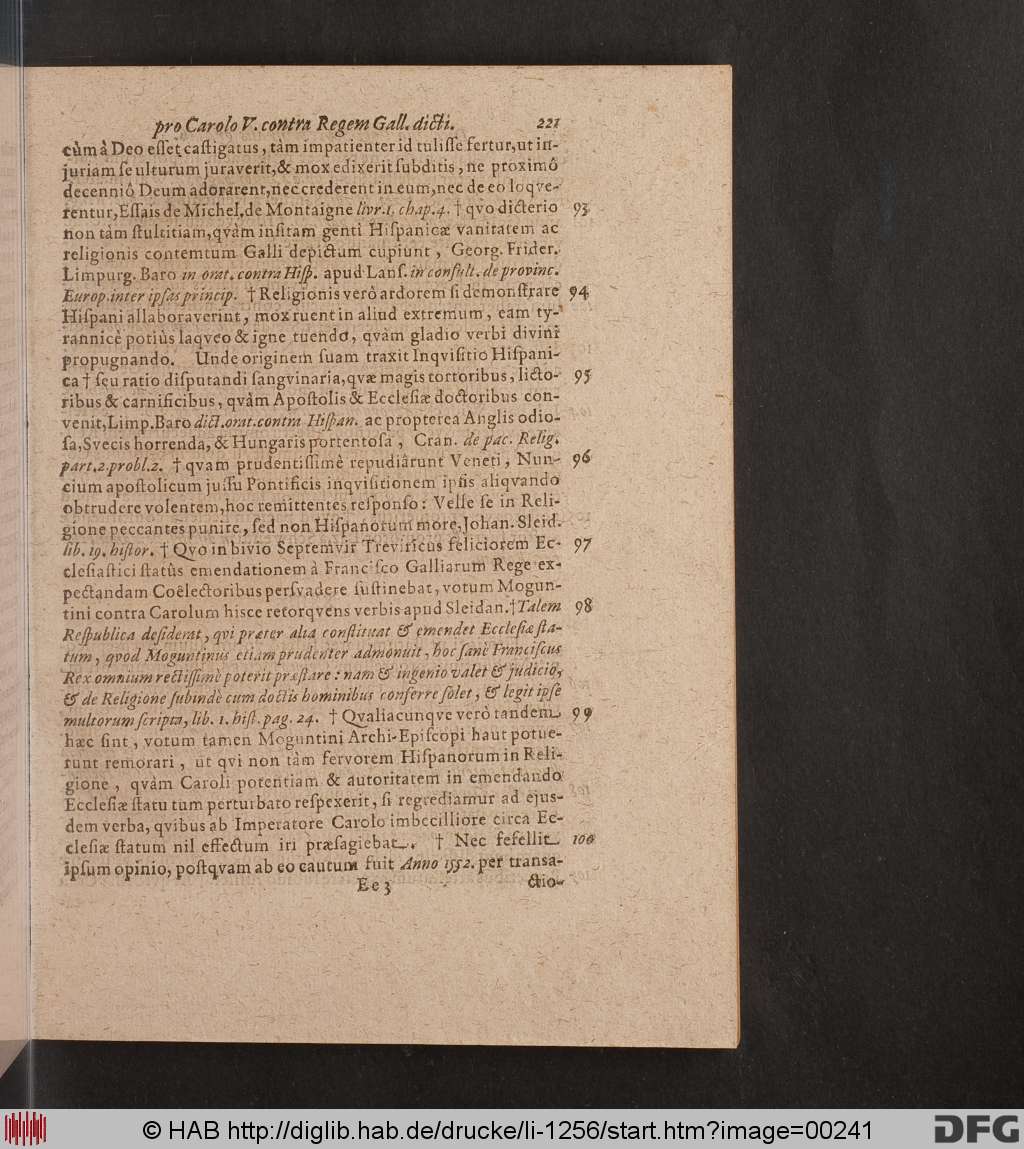 pro Carolo V. contra Regem Gall. dicti. 221
cùm à Deo eſſet caſtigatus, tàm impatienter id tuliſſe fertur, ut in-
juriam ſe ulturum juraverit, & mox edixerit ſubditis, ne proximô
decenniô Deum adorarent, nec crederent in eum, nec de eo loqve-
rentur, Eſſais de Michel, de Montaigne livr. 1. chap. 4. † qvo dicterio 93
non tàm ſtultitiam, qvàm inſitam genti Hiſpanicæ vanitatem ac
religionis contemtum Galli depictum cupiunt, Georg. Frider.
Limpurg. Baro in orat. contra Hiſp. apud Lanſ. in conſult. de provinc.
Europ. inter ipſas princip. † Religionis verò ardorem ſi demonſtrare 94
Hiſpani allaboraverint, mox ruent in aliud extremum, eam ty-
rannicè potiùs laqveo & igne tuendo, qvàm gladio verbi divini
propugnando. Unde originem ſuam traxit Inqviſitio Hiſpani-
ca † ſeu ratio diſputandi ſangvinaria, qvæ magis tortoribus, licto- 95
ribus & carnificibus, qvàm Apoſtolis & Eccleſiæ doctoribus con-
venit, Limp. Baro dict. orat. contra Hiſpan. ac propterea Anglis odio-
ſa, Svecis horrenda, & Hungaris portentoſa, Cran. de pac. Relig.
part. 2. probl. 2. † qvam prudentiſſimè repudiârunt Veneti, Nun- 96
cium apoſtolicum juſſu Pontificis inqviſitionem ipſis aliqvando
obtrudere volentem, hoc remittentes reſponſo: Velle ſe in Reli-
gione peccantes punire, ſed non Hiſpanorum more, Johan. Sleid.
lib. 19. hiſtor. † Qvo in bivio Septemvir Treviricus feliciorem Ec- 97
cleſiaſtici ſtatûs emendationem à Franciſco Galliarum Rege ex-
pectandam Coëlectoribus perſvadere ſuſtinebat, votum Mogun-
tini contra Carolum hisce retorqvens verbis apud Sleidan. † Talem 98
Reſpublica deſiderat, qvi præter alia conſtituat & emendet Eccleſiæ ſta-
tum, qvod Moguntinus etiam prudenter admonuit, hoc ſanè Franciſcus
Rex omnium rectiſſimè poterit præſtare: nam & ingenio valet & judicio,
& de Religione ſubindè cum doctis hominibus conferre ſolet, & legit ipſe
multorum ſcripta, lib. 1. hiſt. pag. 24. † Qvaliacunqve verò tandem 99
hæc ſint, votum tamen Moguntini Archi-Epiſcopi haut potue-
runt remorari, ut qvi non tàm fervorem Hiſpanorum in Reli-
gione, qvàm Caroli potentiam & autoritatem in emendando
Eccleſiæ ſtatu tum perturbato reſpexerit, ſi regrediamur ad ejus-
dem verba, qvibus ab Imperatore Carolo imbecilliore circa Ec-
cleſiæ ſtatum nil effectum iri præſagiebat. † Nec fefellit 100
ipſum opinio, poſtqvam ab eo cautum fuit Anno 1552. per transa-
Ee 3 ctio-
© HAB http://diglib.hab.de/drucke/li-1256/start.htm?image=00241 DFG